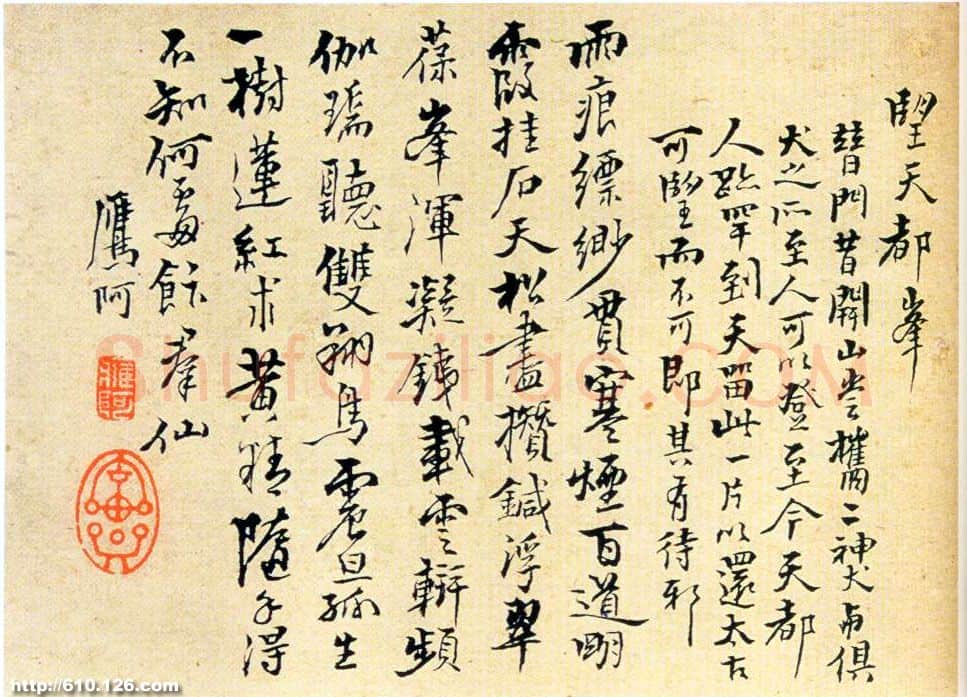 望天都峯
普門昔開山嘗攜二神犬与俱
犬之所至人可以登至今天都
人跡罕到天留此一片以還太古
可望而不可即其有待邪
雨痕縹緲貫寒煙百道明
霞挂石天松盡攢鍼浮翠
葆峯渾凝鐵載雲輧頻
伽瑞聽雙翔鳥震旦孤生
一樹蓮紅朮黃精隨手得
不知何處飯羣仙
鷹阿
鷹阿
Shufaziliao.COM
http://610.126.com